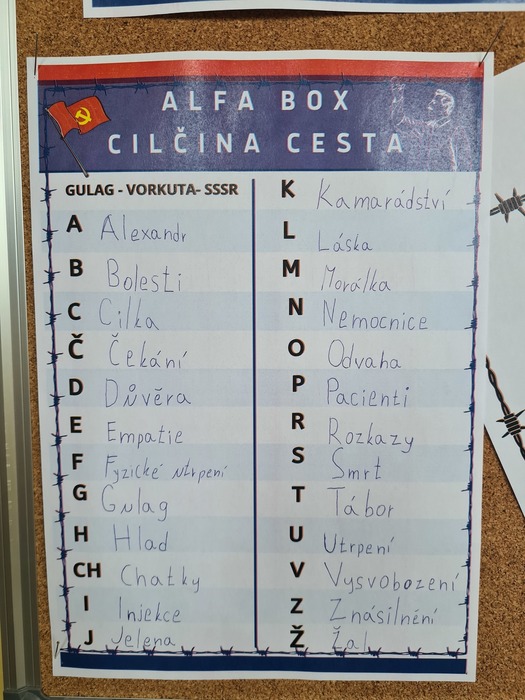 ALFA BOX
CILČINA CESTA
GULAG - VORKUTA- SSSR
A Alexandr
B Bolesti
C Cilka
Č Čekání
D Důvěra
E Empatie
F Fyzické utrpení
G Gulag
H Hlad
CH Chatky
I Injekce
J Jelena
K Kamarádství
L Láska
M Morálka
N Nemocnice
O Odvaha
P Pacienti
R Rozkazy
S Smrt
T Tábor
U Utrpení
V Vysvobození
Z Znásilnění
Ž Žal